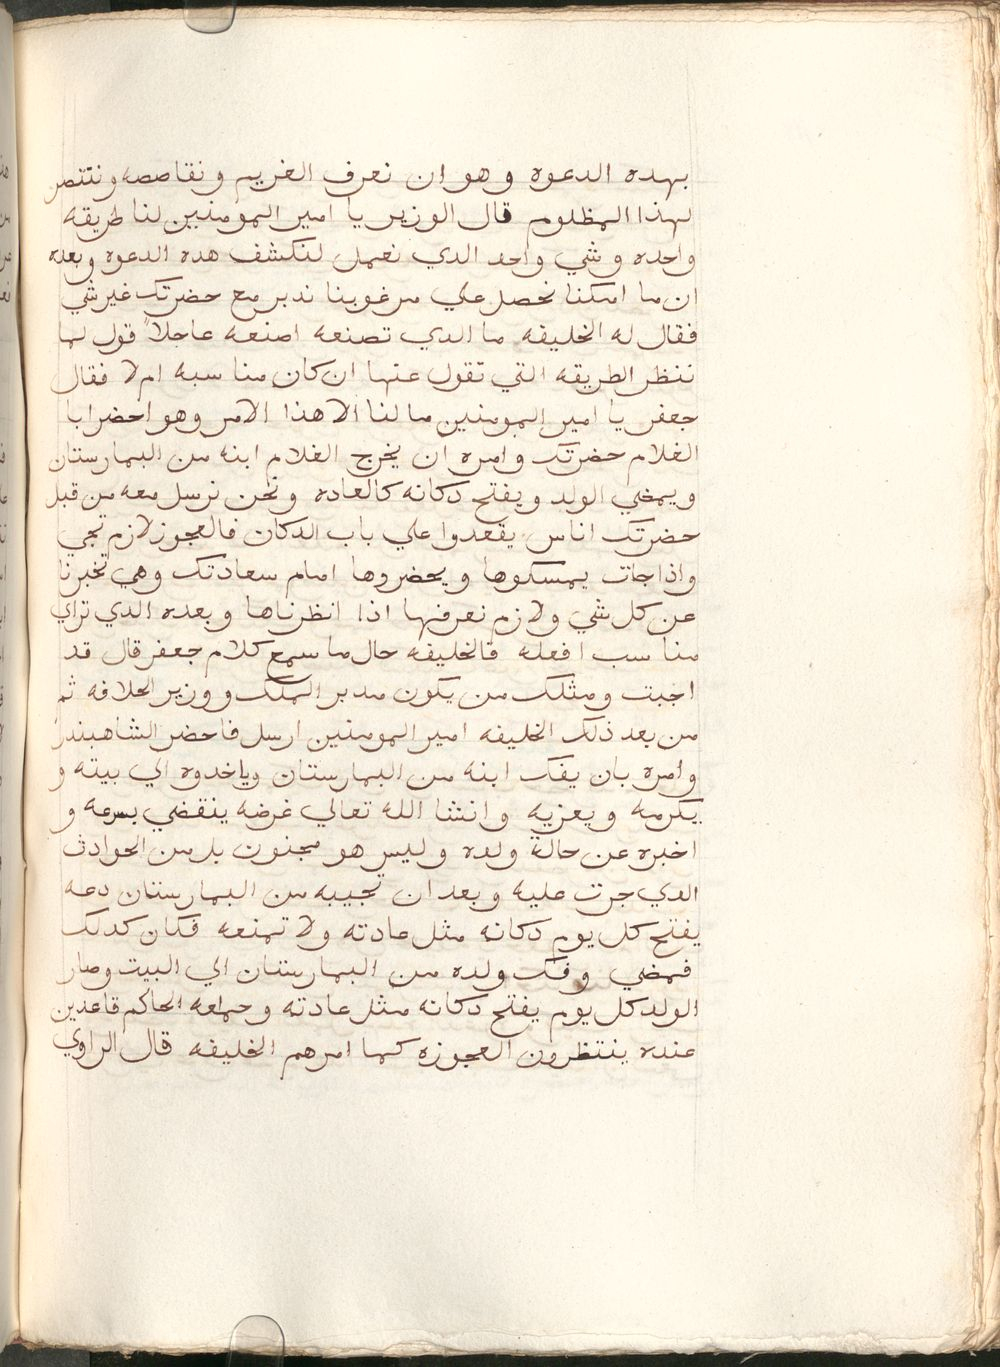 بهده الدعوه وهو ان نعرف الغريم ونقاصصه وننتصر
لهذا المظلوم قال الوزير يا امير المومنين لنا طريقه
واحده وشي واحد الدي نعمل لنكشف هده الدعوه وبعده
ان ما امكنا نحصل علي مرغوبنا ندبر مع حضرتك غير شي
فقال له الخليفه ما الدي تصنعه اصنعه عاجلاً قول لها
ننظر الطريقه التي تقول عنها ان كان مناسبه ام لا فقال
جعفر يا امير المومنين ما لنا الا هذا الامر وهو احضر ابا
الغلام حضرتك وامره ان يخرج الغلام ابنه من البمارستان
ويمضي الولد ويفتح دكانه كالعاده ونحن نرسل معه من قبل
حضرتك اناس يقعدوا علي باب الدكان فالعجوز لازم تجي
واذا جات يمسكوها ويحضروها امام سعادتك وهي تخبرنا
عن كل شي ولازم نعرفها اذا انظرناها وبعده الدي تراي
مناسب افعله فالخليفه حال ما سمع كلام جعفر قال قد
اجبت ومثلك من يكون مدبر الملك ووزير الخلافه ثم
من بعد ذلك الخليفه امير المومنين ارسل فاحضر الشاهبندر
وامره بان يفك ابنه من البمارستان وياخدوه الي بيته و
يكرمه ويعزيه وانشا الله تعالي غرضه ينقضي بسرعه و
اخبره عن حالة ولده وليس هو مجنون بل من الحوادث
الدي جرت عليه وبعد ان تجيبه من البمارستان دعه
يفتح كل يوم دكانه مثل عادته ولا تمنعه فكان كدلك
فمضي وفك ولده من البمارستان الي البيت وصار
الولد كل يوم يفتح دكانه مثل عادته وجماعه الحاكم قاعدين
عنده ينتظرون العجوزه كما امرهم الخليفه قال الراوي